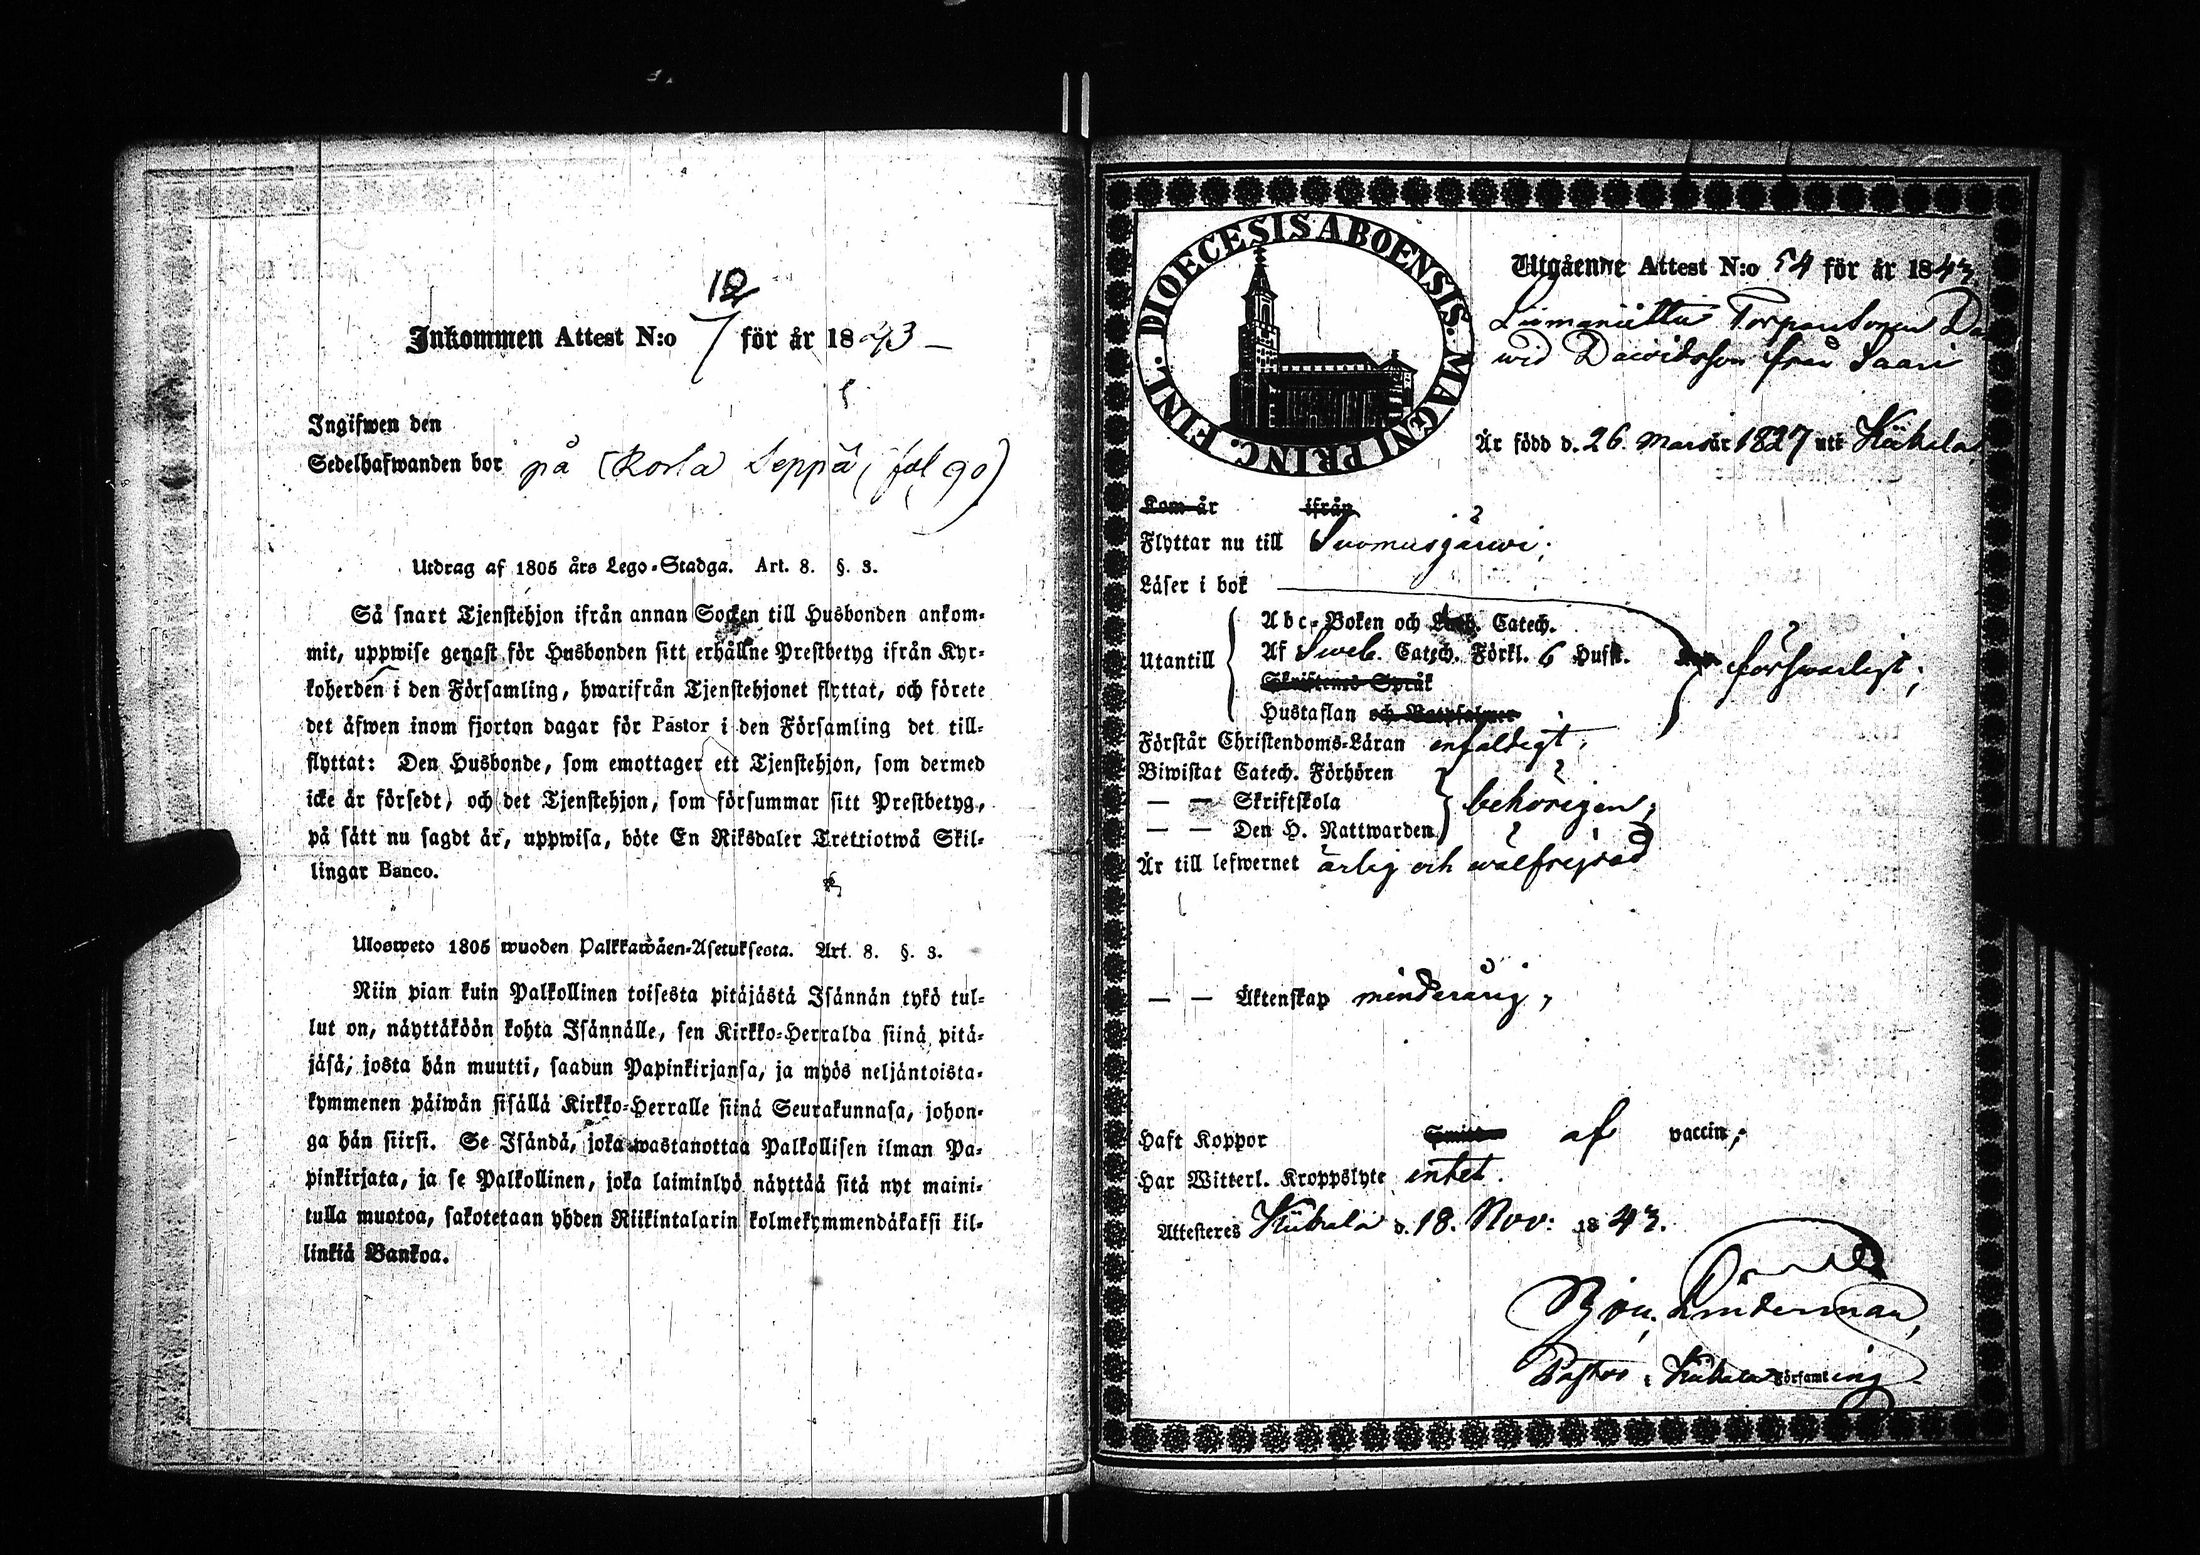 12
Inkommen Attest N:o 7 för år 1843 –
Ingifwen den
Sedelhafwanden bor på (Korla Seppä, fol 90)
Utdrag af 1805 års Lego-Stadga. Art. 8. §. 3.
Så snart Tjenstehjon ifrån annan Socken till Husbonden ankom-
mit, uppwise genast för Husbonden sitt erhållne Prestbetyg ifrån Kyr-
koherden i den Församling, hwarifrån Tjenstehjonet flyttat, och förete
det äfwen inom fjorton dagar för Pastor i den Församling det till-
flyttat: Den Husbonde, som emottager ett Tjenstehjon, som dermed
icke är försedt, och det Tjenstehjon, som försummar sitt Prestbetyg,
på sätt nu sagdt är, uppwisa, böte En Riksdaler Trettiotwå Skil-
lingar Banco.
Ulosweto 1805 wuoden Palkkawäen-Asetuksesta. Art. 8. §. 3.
Niin pian kuin Palkollinen toisesta pitäjästä Isännän tykö tul-
lut on, näyttäköön kohta Isännälle, sen Kirkko-Herralda siinä pitä-
jäsä, josta hän muutti, saadun Papinkirjansa, ja myös neljäntoista-
kymmenen päiwän sisällä Kirkko-Herralle siinä Seurakunnasa, johon-
ga hän siirsi. Se Isändä, joka wastanottaa Palkollisen ilman Pa-
pinkirjata, ja se Palkollinen, joka laiminlyö näyttää sitä nyt maini-
tulla muotoa, sakotetaan yhden Riikintalarin kolmekymmendäkaksi kil-
linkiä Bankoa.
DIOECESIS ABOENSIS. MAGNI PRINC. FINL.
Utgående Attest N:o 54 för år 1843.
Torparesonen Da
wid Dawidsson från Saari
Är född d. 26. Mars år 1827 uti Kiikala
Kom år ifrån
Flyttar nu till Suomusjärwi;
Läser i bok
Utantill
Abc-Boken och Luth. Catech.
Af Sweb. Catech. Förkl. 6 Hufst.
Skriftenes Språk
Hustaflan och Botpsalmer
försvarligt;
Förstår Christendoms-Läran enfaldigt;
Biwistat Catech. Förhören
— — Skriftskola
— — Den H. Nattwarden
behörigen;
Är till lefwernet ärlig och wälfrejdad
— — Äktenskap minderårig,
Haft Koppor af vaccin;
Har Witterl. Kroppslyte intet.
Attesteres Kiikala d. 18. Nov: 1843.
Linderman,
Pastor i Kiikala Församling